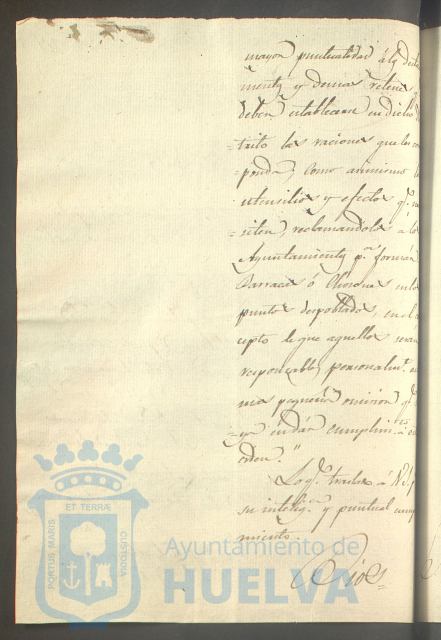 mayor puntualidad á los desta
mentos y demas retenes q
deben establecerse en dicho
trito las raciones que les co
ponda, como asimismo l
utensilios y efectos q.e ne
siten, reclamandolos á lo
Ayuntamientos p.a formar
Barracas ó Chozones en lo
puntos despoblados, en el c
cepto de que aquellos seran
responsables personalm.te
mas pequeña omision q.e
cumplim.to á
orden."
Lo q.e traslado á V.S. p
su intelig.a y puntual cump
miento.
Dios
ET TERRÆ
PORTUS MARIS
CUSTODIA
Ayuntamiento de
HUELVA